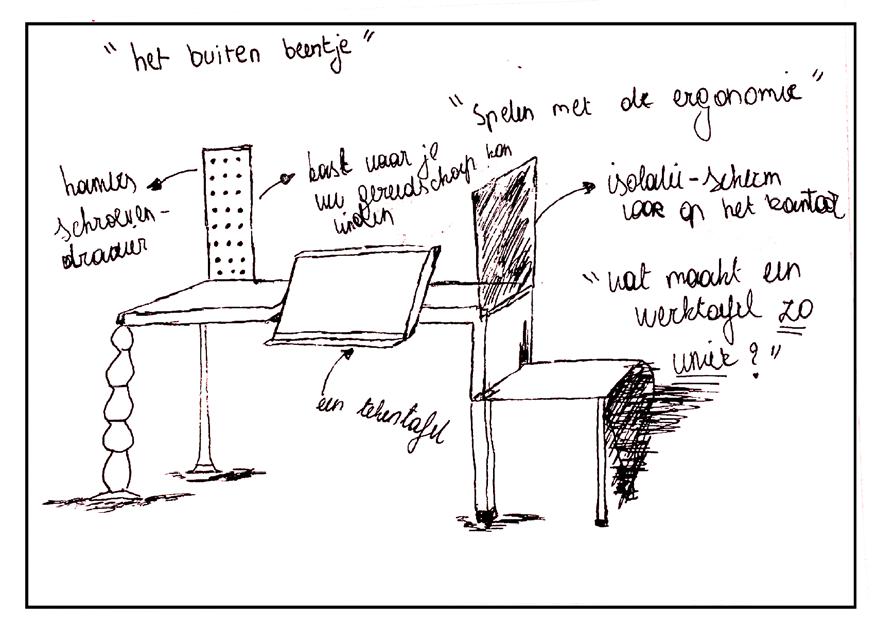 "het buiten beentje"
"Spelen met de ergonomie"
hamers
schroeven-
draaier
kast waar je
uw gereedschap kan
vinden
isolatie-scherm
voor op het kantoor
"wat maakt een
werktafel zo
uniek?"
een tekentafel